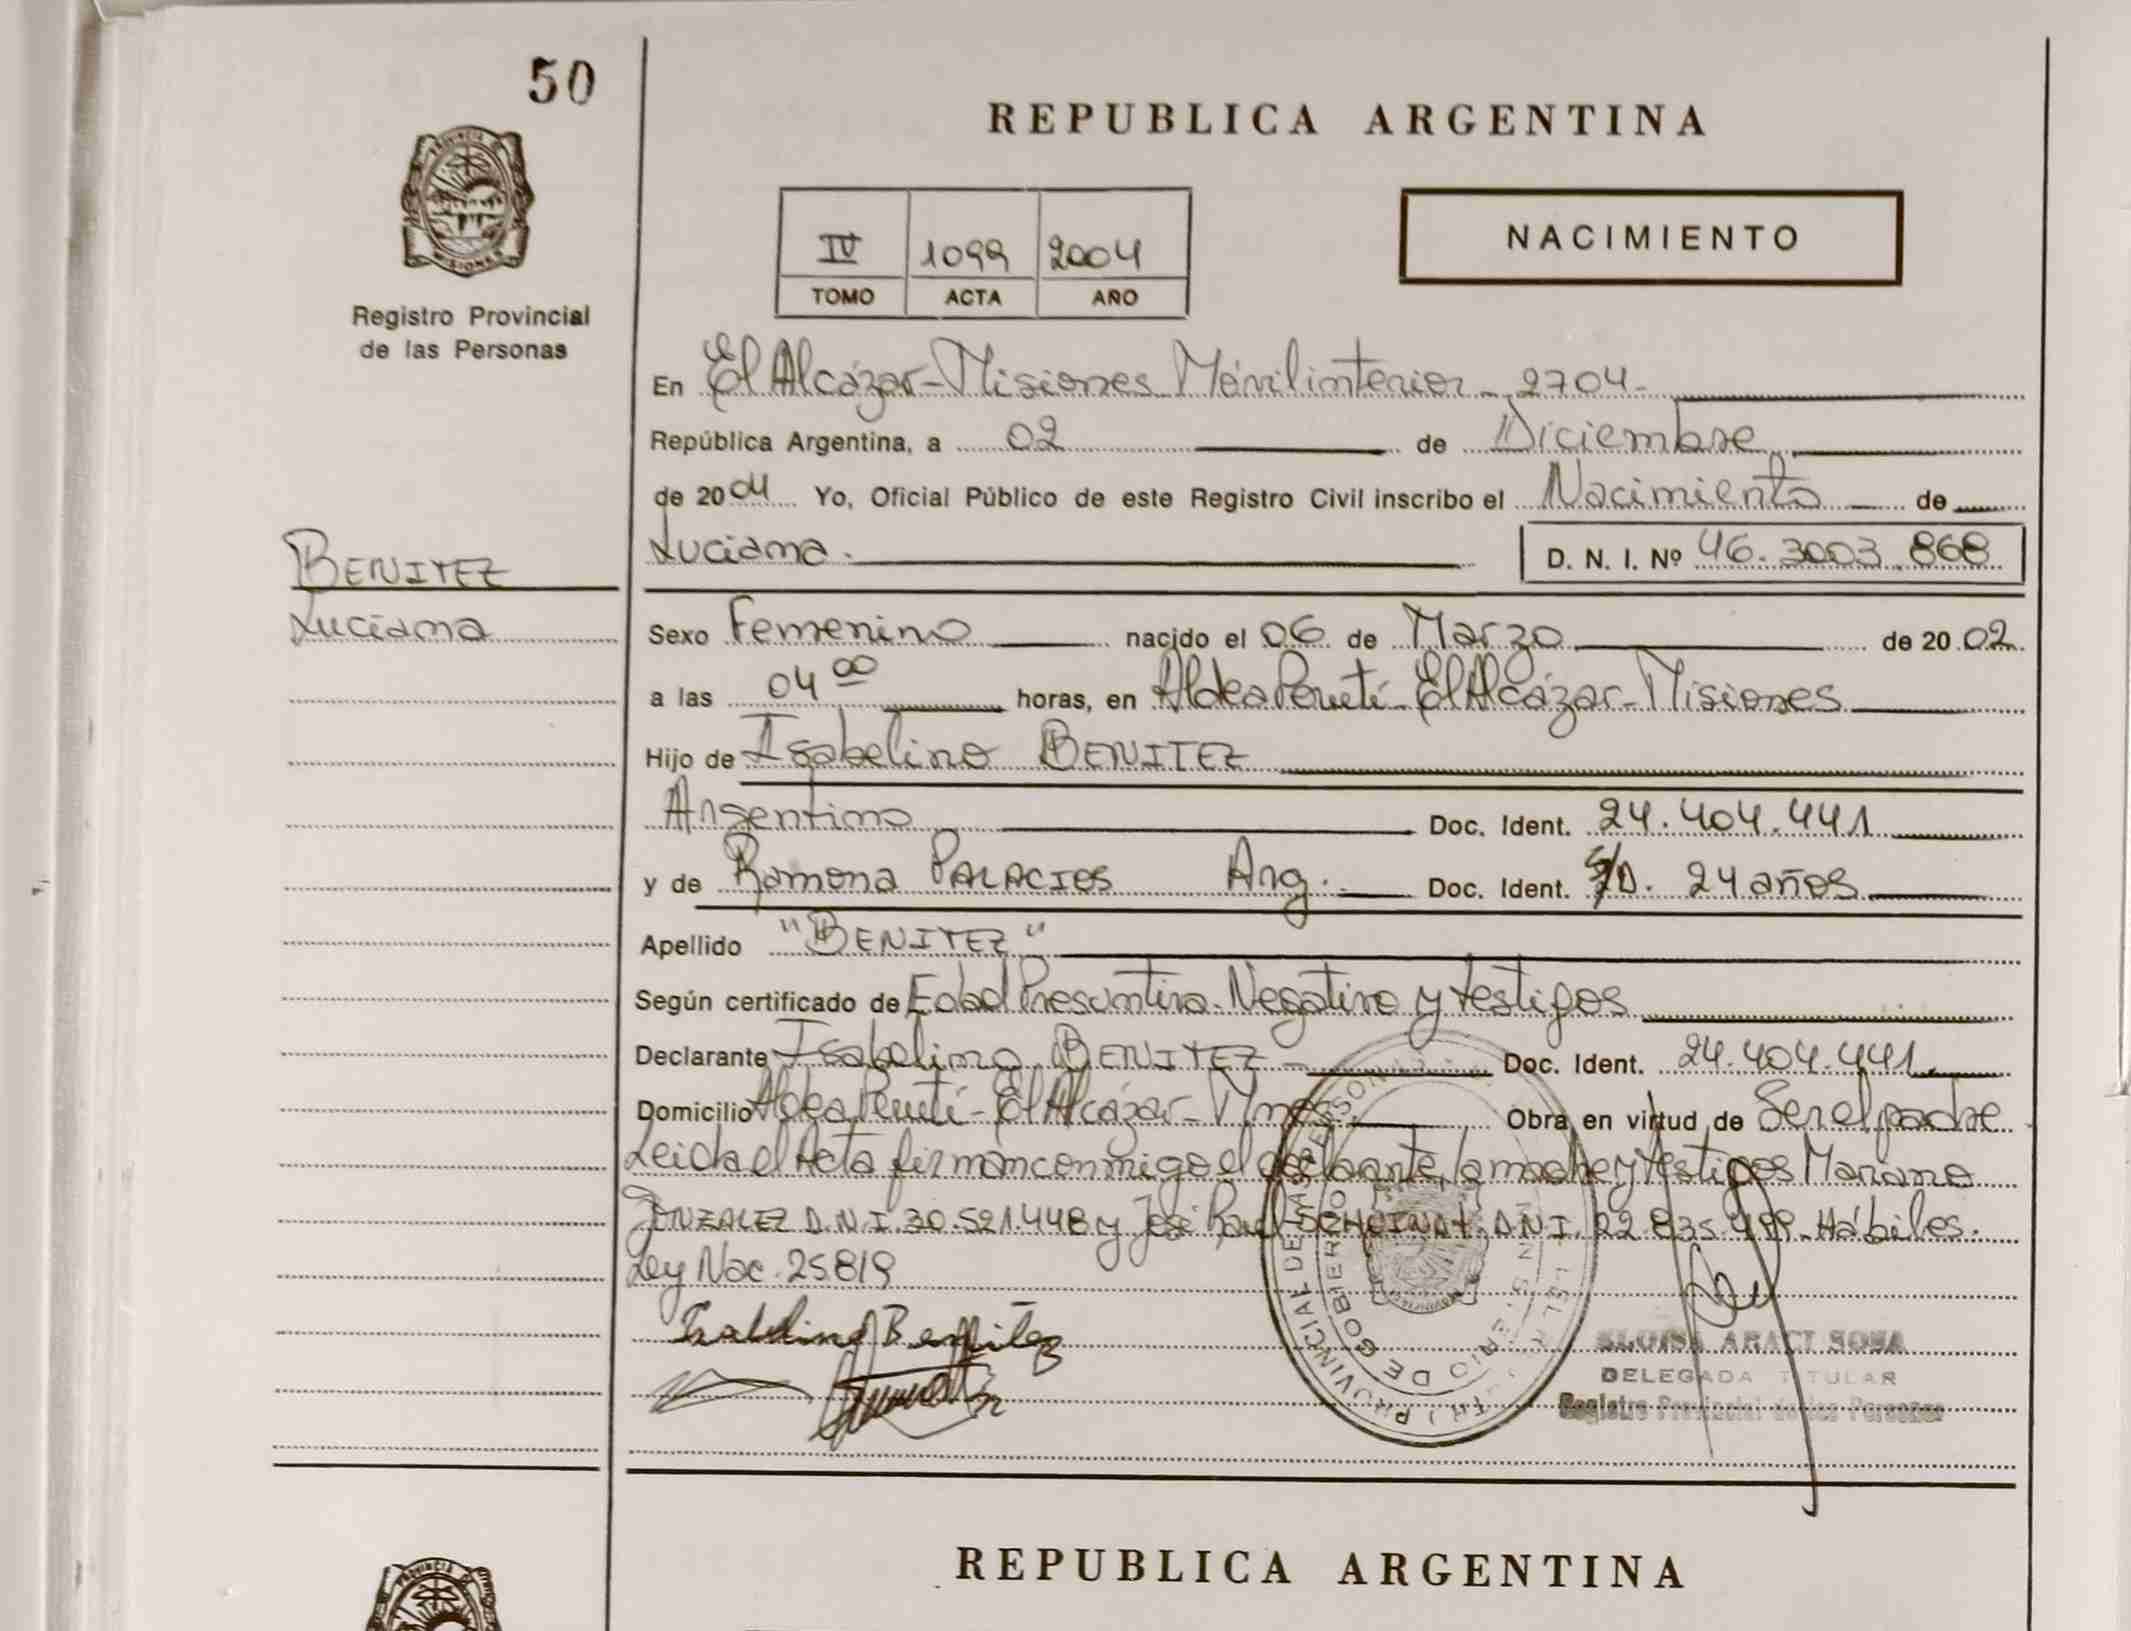 50
REPUBLICA ARGENTINA
PROVINCIA DE
MISIONES
Registro Provincial
de las Personas
IV 1099 2004
TOMO ACTA AÑO
NACIMIENTO
En El Alcázar-Misiones Móvil interior 2704-
República Argentina, a 02 de Diciembre
de 2004 Yo, Oficial Público de este Registro Civil inscribo el Nacimiento de
Luciana. D. N. I. Nº 46.3003.868
BENITEZ
Luciana
Sexo Femenino nacido el 06 de Marzo de 2002
a las 04 00 horas, en Aldea Perutí-El Alcázar-Misiones
Hijo de Isabelino BENITEZ
Argentino Doc. Ident. 24.404.441
y de Ramona PALACIOS Arg. Doc. Ident. S/D. 24 años
Apellido "BENITEZ"
Según certificado de Edad Presuntiva-Negativo y testigos
Declarante Isabelino BENITEZ Doc. Ident. 24.404.441
Domicilio Aldea Perutí-El Alcázar-Mnes. Obra en virtud de Ser el padre
Leida el Acta firman conmigo el declarante, la madre y testigos Mariano
GONZALEZ D.N.I. 30.521.448 y José D.N.I. 22.835.499-Hábiles.
Ley Nac. 25819
Isabelino Benitez
PROVINCIAL DE LAS PERSONAS
DE GOBIERNO
ELOISA ARACI SOSA
DELEGADA TITULAR
Registro Provincial de las Personas
REPUBLICA ARGENTINA
PROVINCIA